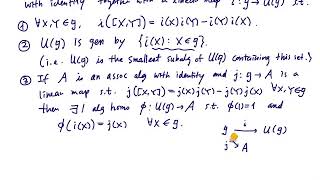 with identity together with a linear map i: g → U(g) s.t.
① ∀X,Y∈g, i([X,Y]) = i(X)i(Y) - i(Y)i(X).
② U(g) is gen by {i(X): X∈g}.
(i.e. U(g) is the smallest subalg of U(g) containing this set.)
③ If A is an assoc alg with identity and j: g → A is a
linear map s.t. j([X,Y]) = j(X)j(Y) - j(Y)j(X) ∀X,Y∈g
then ∃! alg homo ϕ: U(g) → A s.t. ϕ(1) = 1 and
ϕ(i(X)) = j(X) ∀X∈g.
g i→ U(g)
j A